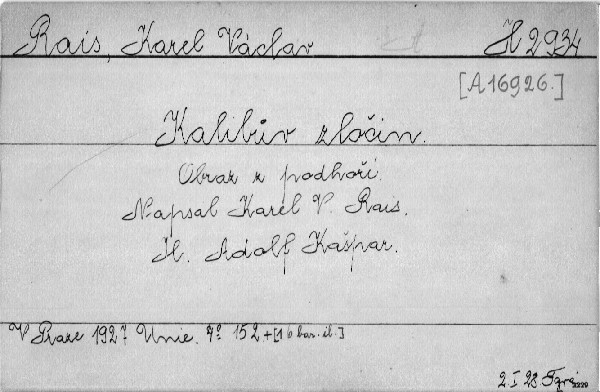 Rais, Karel Václav H 2934
[A 16926.]
Kalibův zločin.
Obraz z podhoří.
Napsal Karel V. Rais.
Il. Adolf Kašpar.
V Praze 1927 Unie. 4° 152 + [16 bar. il.]
2. I. 28